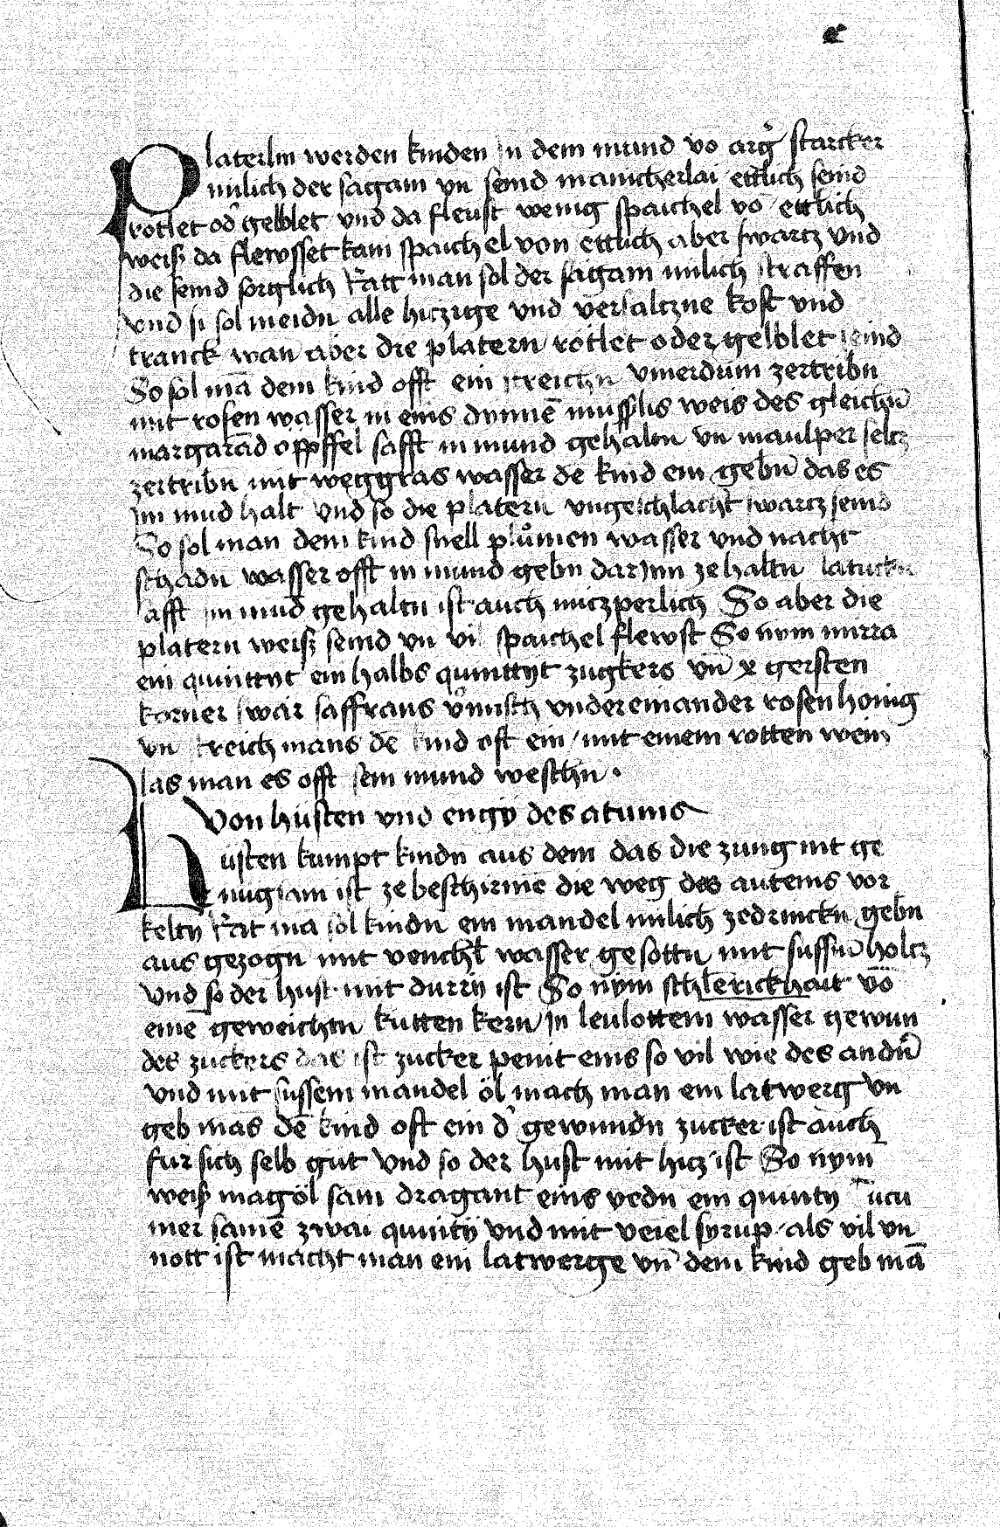 Platerlin werden kinden in dem mund vō arg͛ starcker
milich der sagam vn̄ seind manicherlai ettlich seind
rotlet od͛ gelblet vnd da fleust wenig spaichel vō ettlich
weiß da flewsset kain spaichel von ettlich aber swartz vnd
die seind sorglich Rat man sol der sagam milich straffen
vnd si sol meidn alle hiczige vnd versalczne kost vnd
tranck wan aber die platern rotlet oder gelblet seind
So sol mā dem kind offt ein streichn vmerdum zertribn
mit rosen wasser in eins dynnē müsslis weis des gleichn̄
margarād öppffel safft in mund gehaltn vn̄ maulper selcz
zertribn mit weggras wasser de kind ein gebn̄ das es
im mūd halt vnd so die platern vngeschlacht swarcz seind
So sol man dem kind snell plůmen wasser vnd nacht
schadn wasser offt in mund gebn darinn ze haltn latuckn
safft im mūd gehaltn ist auch nuczperlich So aber die
platern weiß seind vn̄ vil spaichel flewst So nym mirra
ein quinttyt ein halbs quinttyt zugkers vn̄ x gersten
korner swär saffrans v͛misch vndereinander rosen honig
vn̄ streich mans dē kind oft ein / mit einem rotten wein
las man es offt sein mund weschn .
Von hüsten vnd engÿ des atums
Hüsten kumpt kindn aus dem das die zung nit ge
nugsam ist ze beschirmē die weg des autems vor
keltÿ Rat mā sol kindn ein mandel milich zedrinckn gebn̄
aus gezogn mit venchl̄ wasser gesottn mit süssn̄ holcz
vnd so der hust mit durrÿ ist So nym schlerickhait vō
einē geweichtn kutten kern in leulottem wasser gewun
des zuckers das ist zucker penit eins so vil wie des andn̄
vnd mit süssem mandel öl mach man ein latwerg vn̄
geb mās dē kind oft ein d͛ gewundn zucker ist auch
fur sich selb gut vnd so der hust mit hicz ist So nym
weiß magöl sam dragant eins yedn ein quinty Cucu
mer samē zwai quintÿ vnd mit veiel syrup als vil vn̄
nott ist macht man ein latwerge vn̄ dem kind geb mā